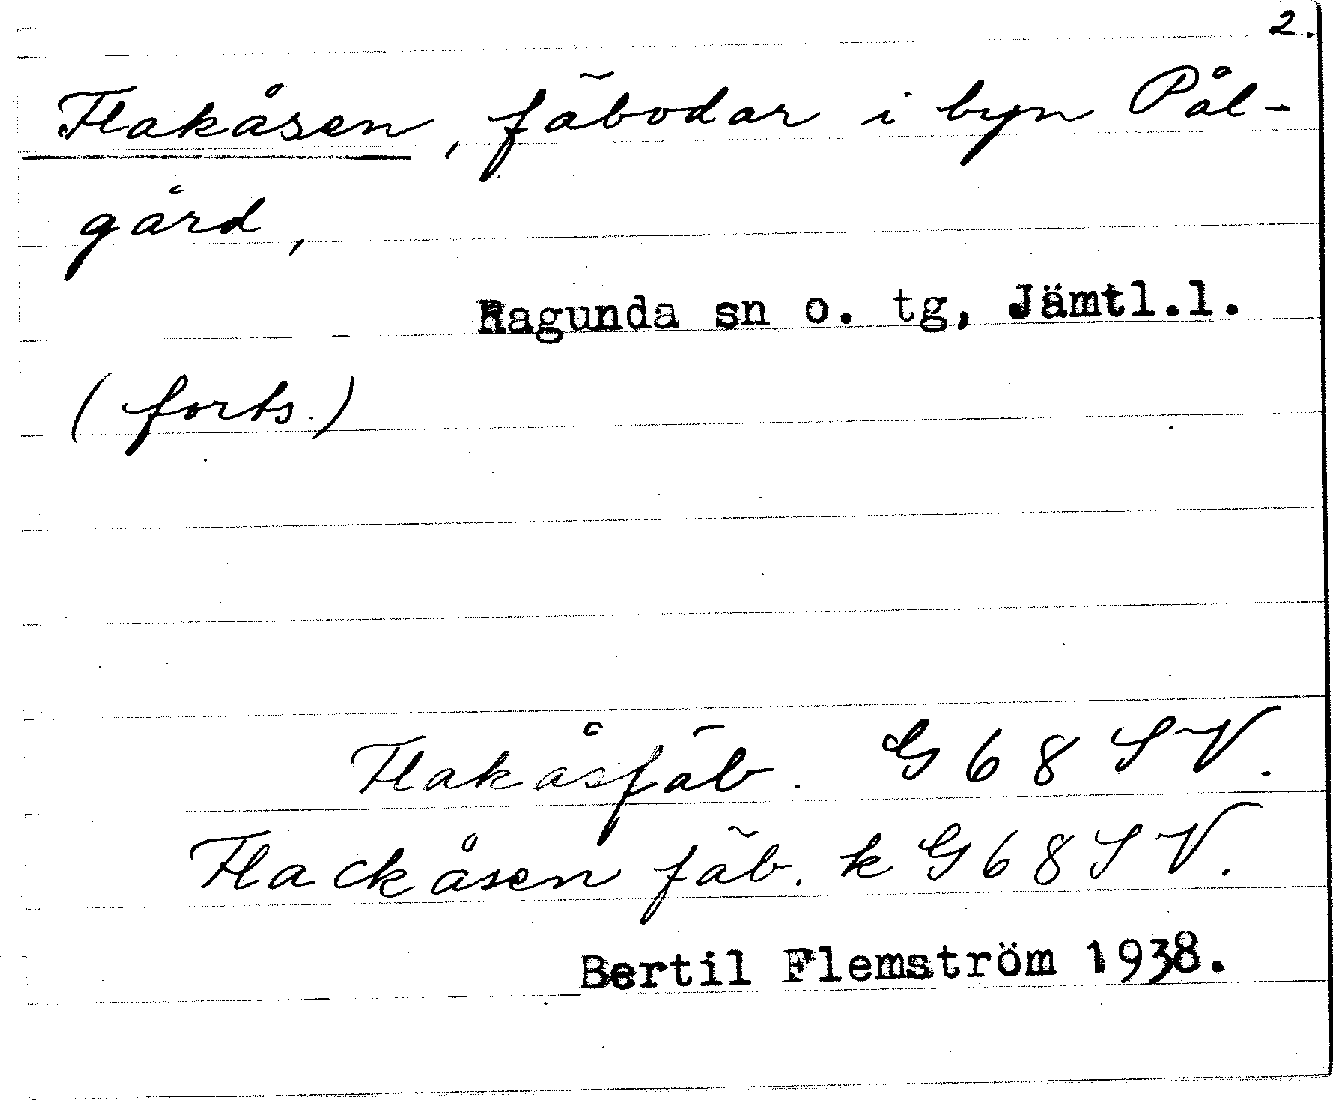 2.
Flakåsen, fäbodar i byn Pål-
gård,
Ragunda sn o. tg, Jämtl.l.
(forts.)
Flakåsfäb. G 68 SV.
Flackåsen fäb. k G 68 SV.
Bertil Flemström 1938.